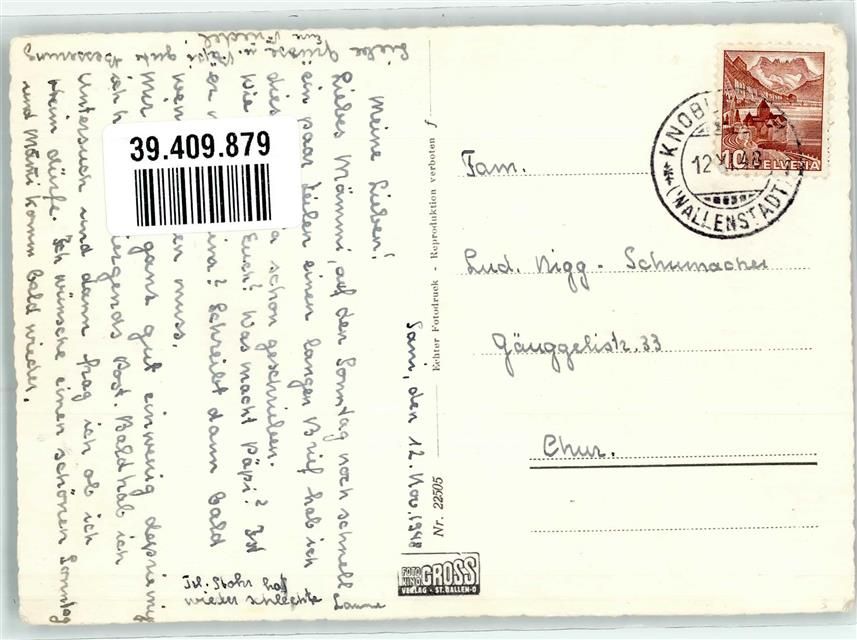 Sani, den 12. Nov. 1948
Meine Lieben!
Liebes Mammi, auf den Sonntag noch schnell
ein paar Zeilen einen langen Brief hab ich
dies a schon geschrieben.
Wie Euch? Was macht Päpi? Ist
er eins? Schreibt dann bald
wen en muss.
Mir ganz gut einwenig
ich nirgends Post. Bald hab ich
Untersuch und dann frag ich ob ich
Heim dürfe. Ich wünsche einen schönen Sonntag
und Mami komm bald wieder.
Liebe Grüsse u. Päpi gute Besserung
Eure
Frl. Stohr hat
wieder schlechte
Laune
39.409.879
Echter Fotodruck - Reproduktion verboten
Nr. 22505
FOTO KINO GROSS
VERLAG - ST. GALLEN-O
10 HELVETIA
KNOBL
12 XI 48
(WALLENSTADT)
Fam.
Lud. Nigg - Schumacher
Gäuggelistr. 33
Chur.